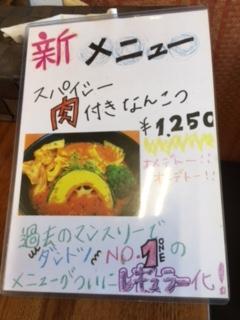 新メニュー
スパイシー
肉付きなんこつ
¥1,250
オメデトー!!
過去のマンスリーで
ダントツ NO.1 ONE の
メニューがついにレギュラー化!